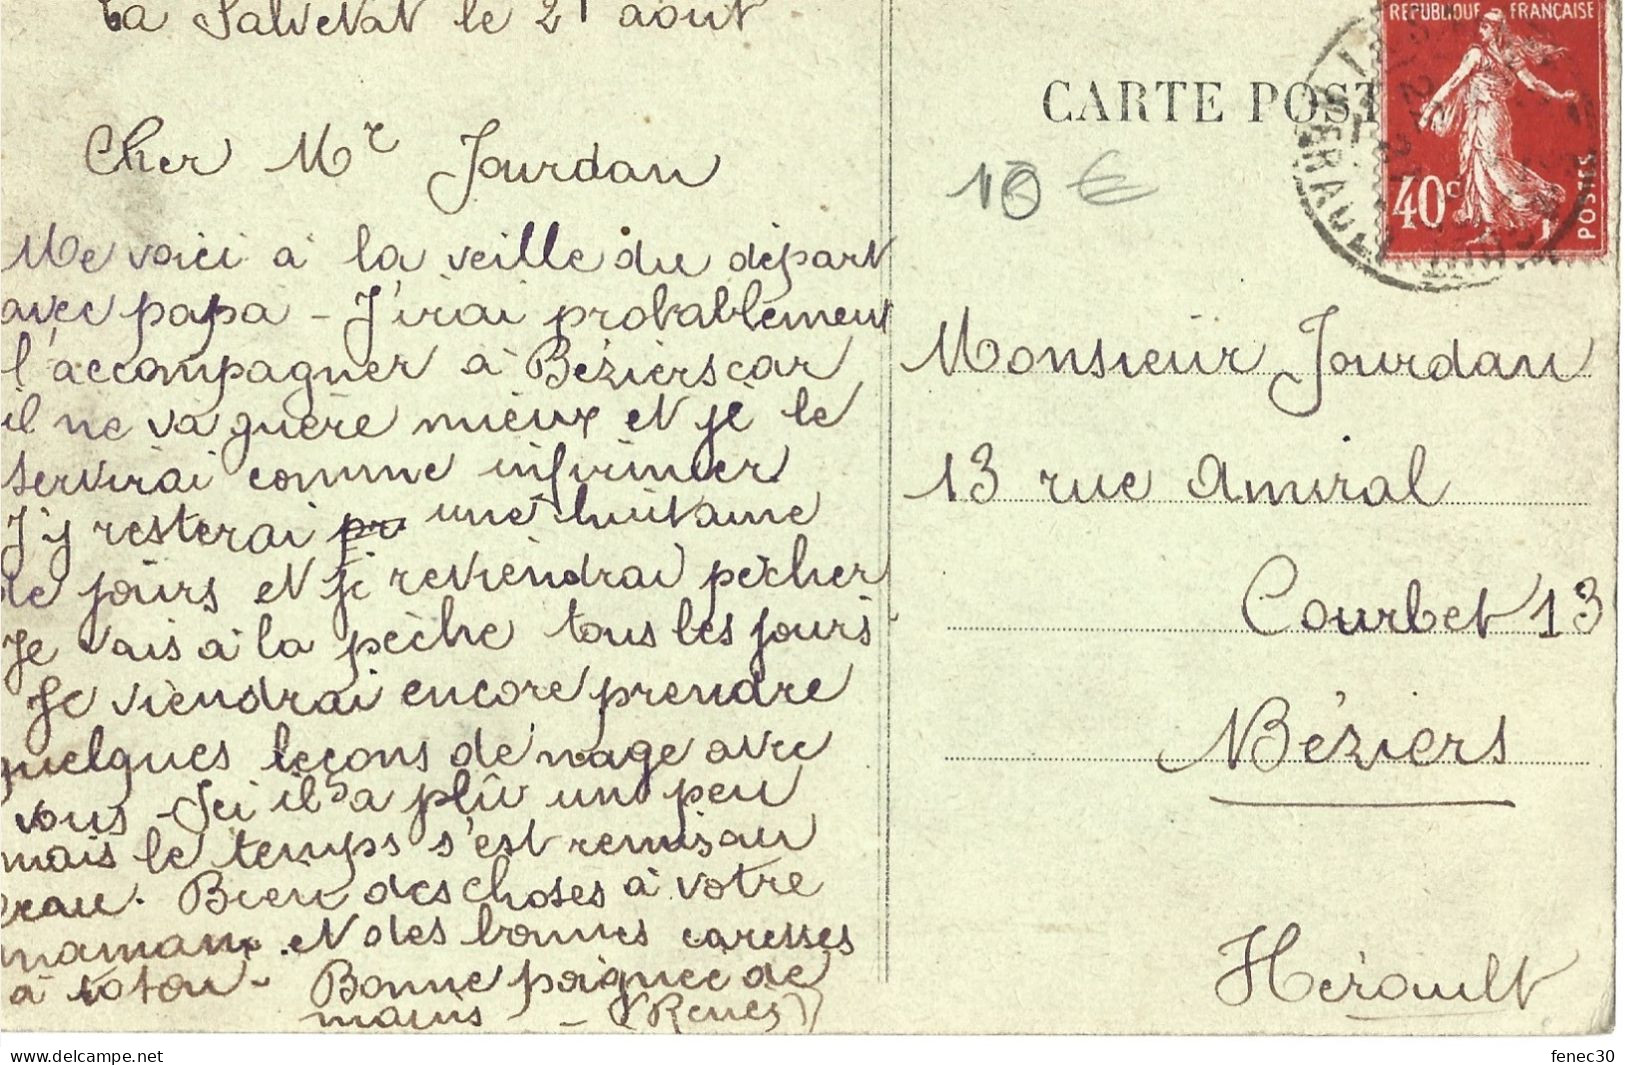 La Salvetat le 21 août
Cher Mr Jourdan
Me voici à la veille du départ
avec papa - J'irai probablement
l'accompagner à Béziers car
il ne va guère mieux et je le
servirai comme infirmier
J'y resterai une huitaine
de jours et je reviendrai pêcher
Je vais à la pêche tous les jours
Je viendrai encore prendre
quelques leçons de nage avec
vous - Ici il a plû un peu
mais le temps s'est remis au
beau. Bien des choses à votre
maman et des bonnes caresses
à toton - Bonne poignée de
mains - René
CARTE POST
REPUBLIQUE FRANÇAISE
40c
POSTES
HERAULT
10 €
Monsieur Jourdan
13 rue Amiral
Courbet 13
Béziers
Hérault
www.delcampe.net
fenec30